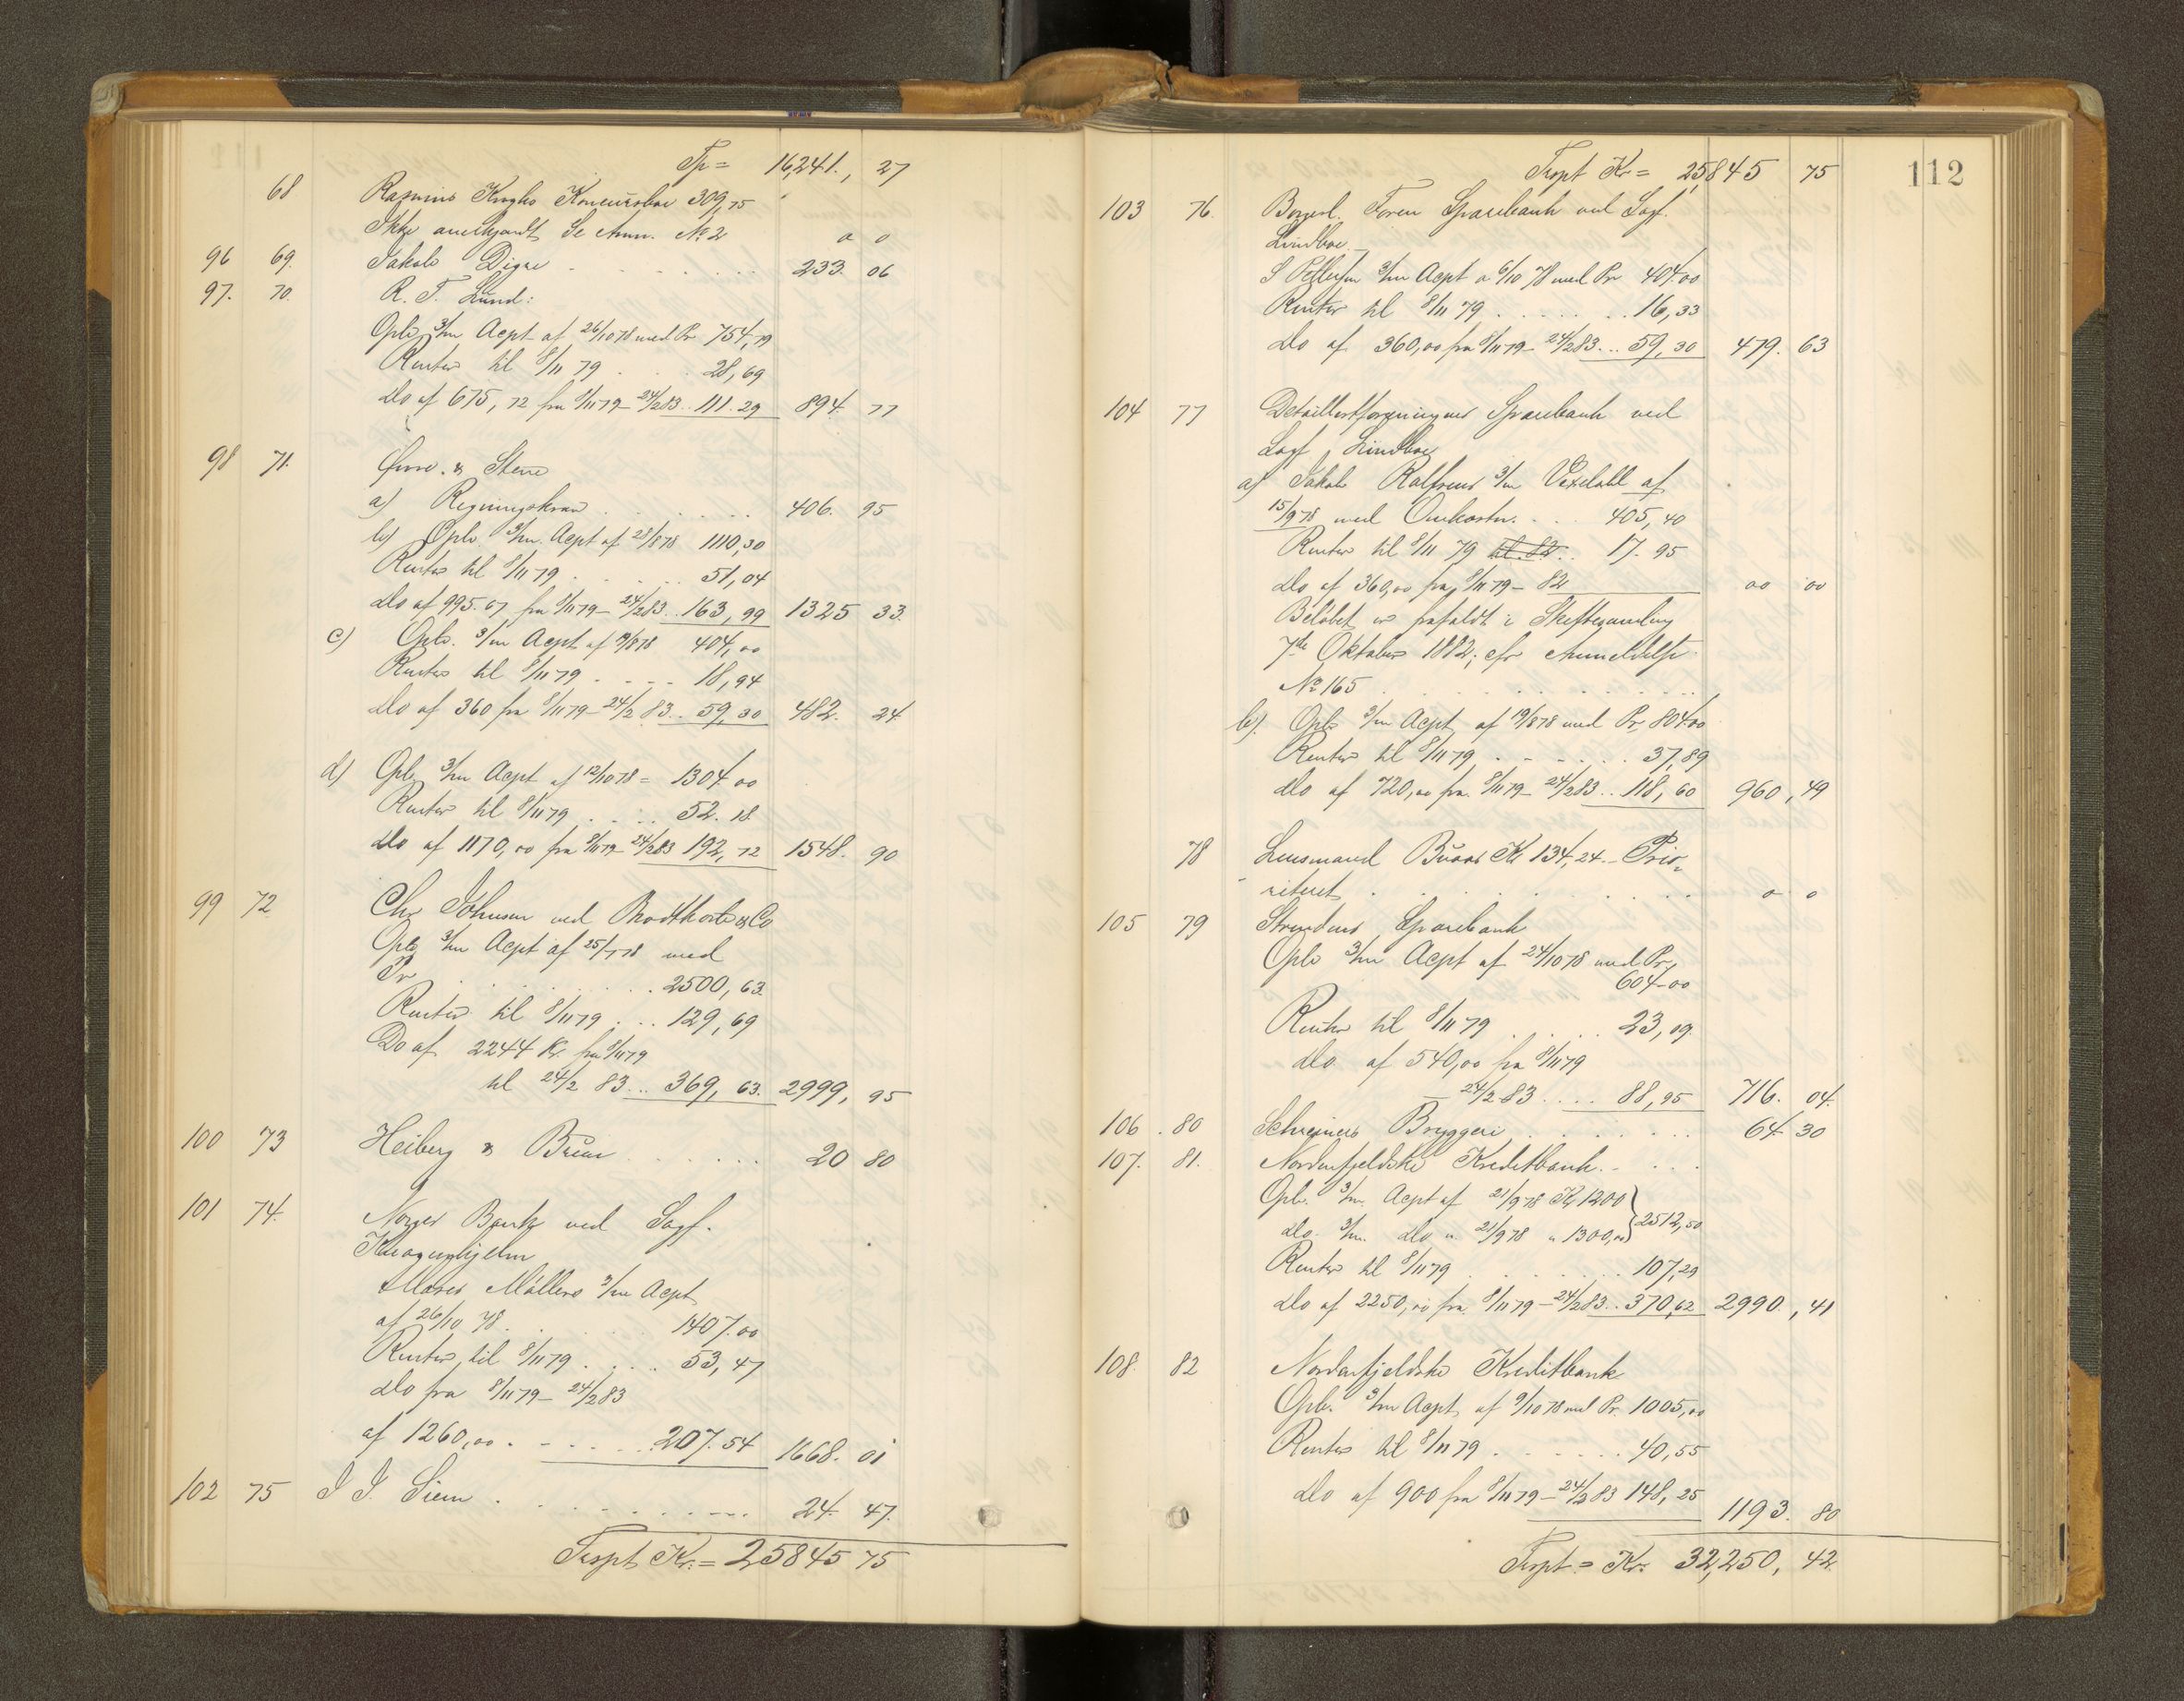 Tp = 16,241., 27
68 Rasmus Kroghs Koncursbo 309,75
Ikke anerkjendt Se Anm. No 2 0 0
96 69. Jakob Digre . . . . . . 233. 06
97. 70. R. F. Lund:
Opb 3/m Acpt af 26/10 78 med Pr 754,79
Renter til 8/11 79 . . 28,69
Do af 675,72 fra 8/11 79 – 24/2 83 .. 111.29 894. 77
98 71. & Steen
a) Regningskrav . . . . . . 406. 95
b) Opb 3/m. Acpt af 28/8 78 1110,30
Renter til 8/11 79 . . . . 51,04
Do af 995.67 fra 8/11 79 – 24/2 83 .. 163,99 1325 33.
c) Opb. 3/m Acpt af 19/8 78 404,00
Renter til 8/11 79 . . . . 18,94
Do af 360 fra 8/11 79 – 24/2 83 .. 59,30 482. 24
d) Opb 3/m Acpt af 12/10 78 = 1304 00
Renter til 8/11 79 . . . . 52.18
Do af 1170,00 fra 8/11 79 – 24/2 83 192,72 1548. 90
99 72 Chr Johnsen ved Brodtkorb & Co
Opb 3/m Acpt af 25/7 78 med
Pr . . . . . . . 2500,63.
Renter til 8/11 79 . . . 129,69
Do af 2244 Kr. fra 8/11 79
til 24/2 83 ... 369,63. 2999, 95
100 73 Heiberg & Bruun . . . . . . 20 80
101 74. Norges Bank ved Sagf.
Kroguphjelm
Moses Møllers 3/m Acpt
af 26/10 78 . . . . . . 1407.00
Renter til 8/11 79 . . . . 53,47
Do fra 8/11 79 – 24/2 83
af 1260,00 . - . . . . . 207.54 1668. 01
102 75 I I. Siem . . . . . . . . . 24. 47.
Trspt Kr. = 25845 75
112
Trspt Kr = 25,845 75
103 76. Borgerl. Foren Sparebank ved Sagf.
Lindboe. –
S Pettersen 3/m Acpt a 6/10 78 med Pr 404.00
Renter til 8/11 79 . . . . . . . 16,33
Do af 360,00 fra 8/11 79 – 24/2 83 ... 59,30 479. 63
104 77 Detaillistforeningens Sparebank ved
Sagf. Lindboe
a) Jakob Rolfsens 3/m Vexelobl af
15/9 78 med Omkostn. . . . 405,40
Renter til 8/11 79 til 82 . . 17.95
Do af 360,00 fra 8/11 79 – 82 00 00
Beløbet er frafaldt i Skiftesamling
7de Oktober 1882; cfr Anmeldelse
No 165 . . . . . . . . . . . .
b). Opb 3/m Acpt af 19/8 78 med Pr 804.00
Renter til 8/11 79 . . . . . . . 37,89
Do af 720,00 fra 8/11 79 – 24/2 83 .. 118,60 960, 49
78 Lensmand Buaas Kr 134,24 – Prio-
riteret . . . . . . . . . . . 0 0
105 79 Strindens Sparebank
Opb 3/m Acpt af 24/10 78 med Pr,
604-00
Renter til 8/11 79 . . . . . 23,09.
Do af 540,00 fra 8/11 79
– 24/2 83 .... 88,95 716. 04.
106 . 80 Schreiners Bryggeri . . . . . . . 64. 30
107. 81. Nordenfjeldske Kreditbank. . . . .
Opb. 3/m. Acpt af 21/9 78 Kr 1200
do. 3/m. do " 21/9 78 " 1300,00 } 2512,50
Renter til 8/11 79 . . . . . . . 107,29
Do af 2250,00 fra 8/11 79 – 24/2 83 .. 370,62 2990., 41
108. 82 Nordenfjeldske Kreditbank
Opb. 3/m Acpt, af 9/10 78 med Pr. 1005,00
Renter til 8/11 79 . . . . . . . 40,55
Do af 900 fra 8/11 79 – 24/2 83 148,25 1193. 80
Trspt. = Kr. 32,250, 42.